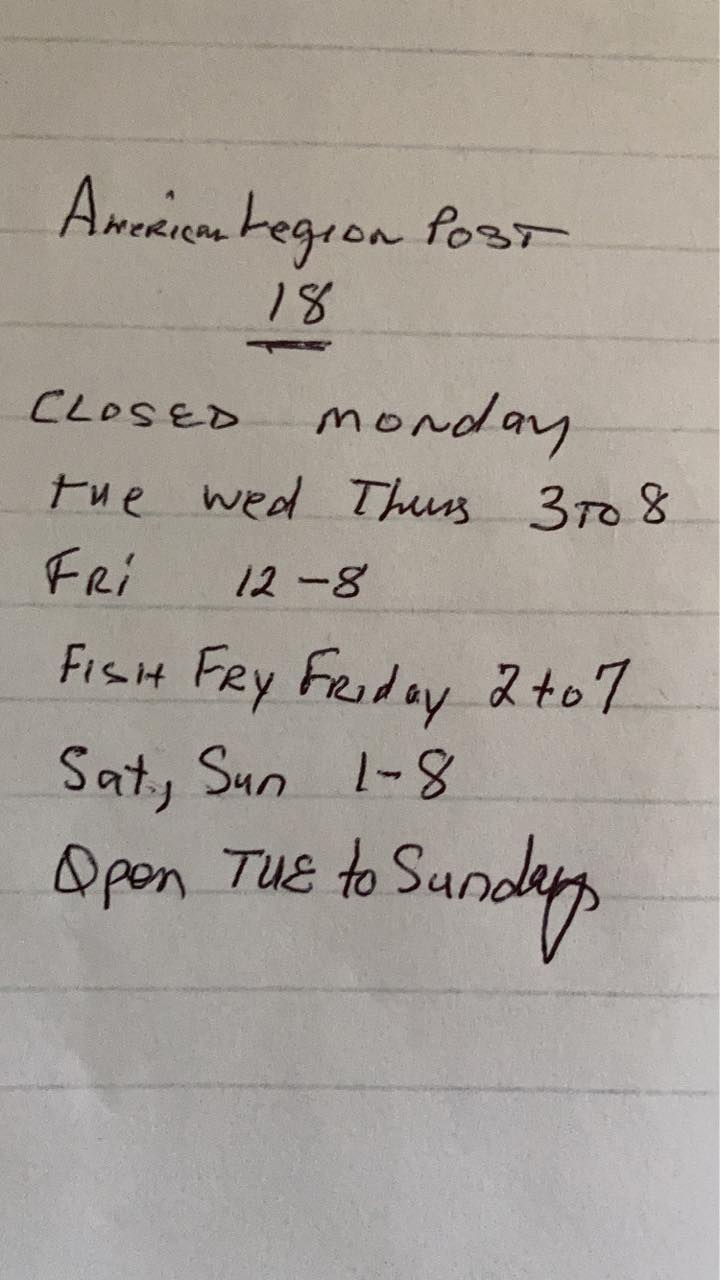 American Legion Post
18
CLOSED monday
tue wed Thurs 3 TO 8
FRi 12-8
FISH FRY FRiday 2 to 7
Sat, Sun 1-8
Open TUE to Sundays